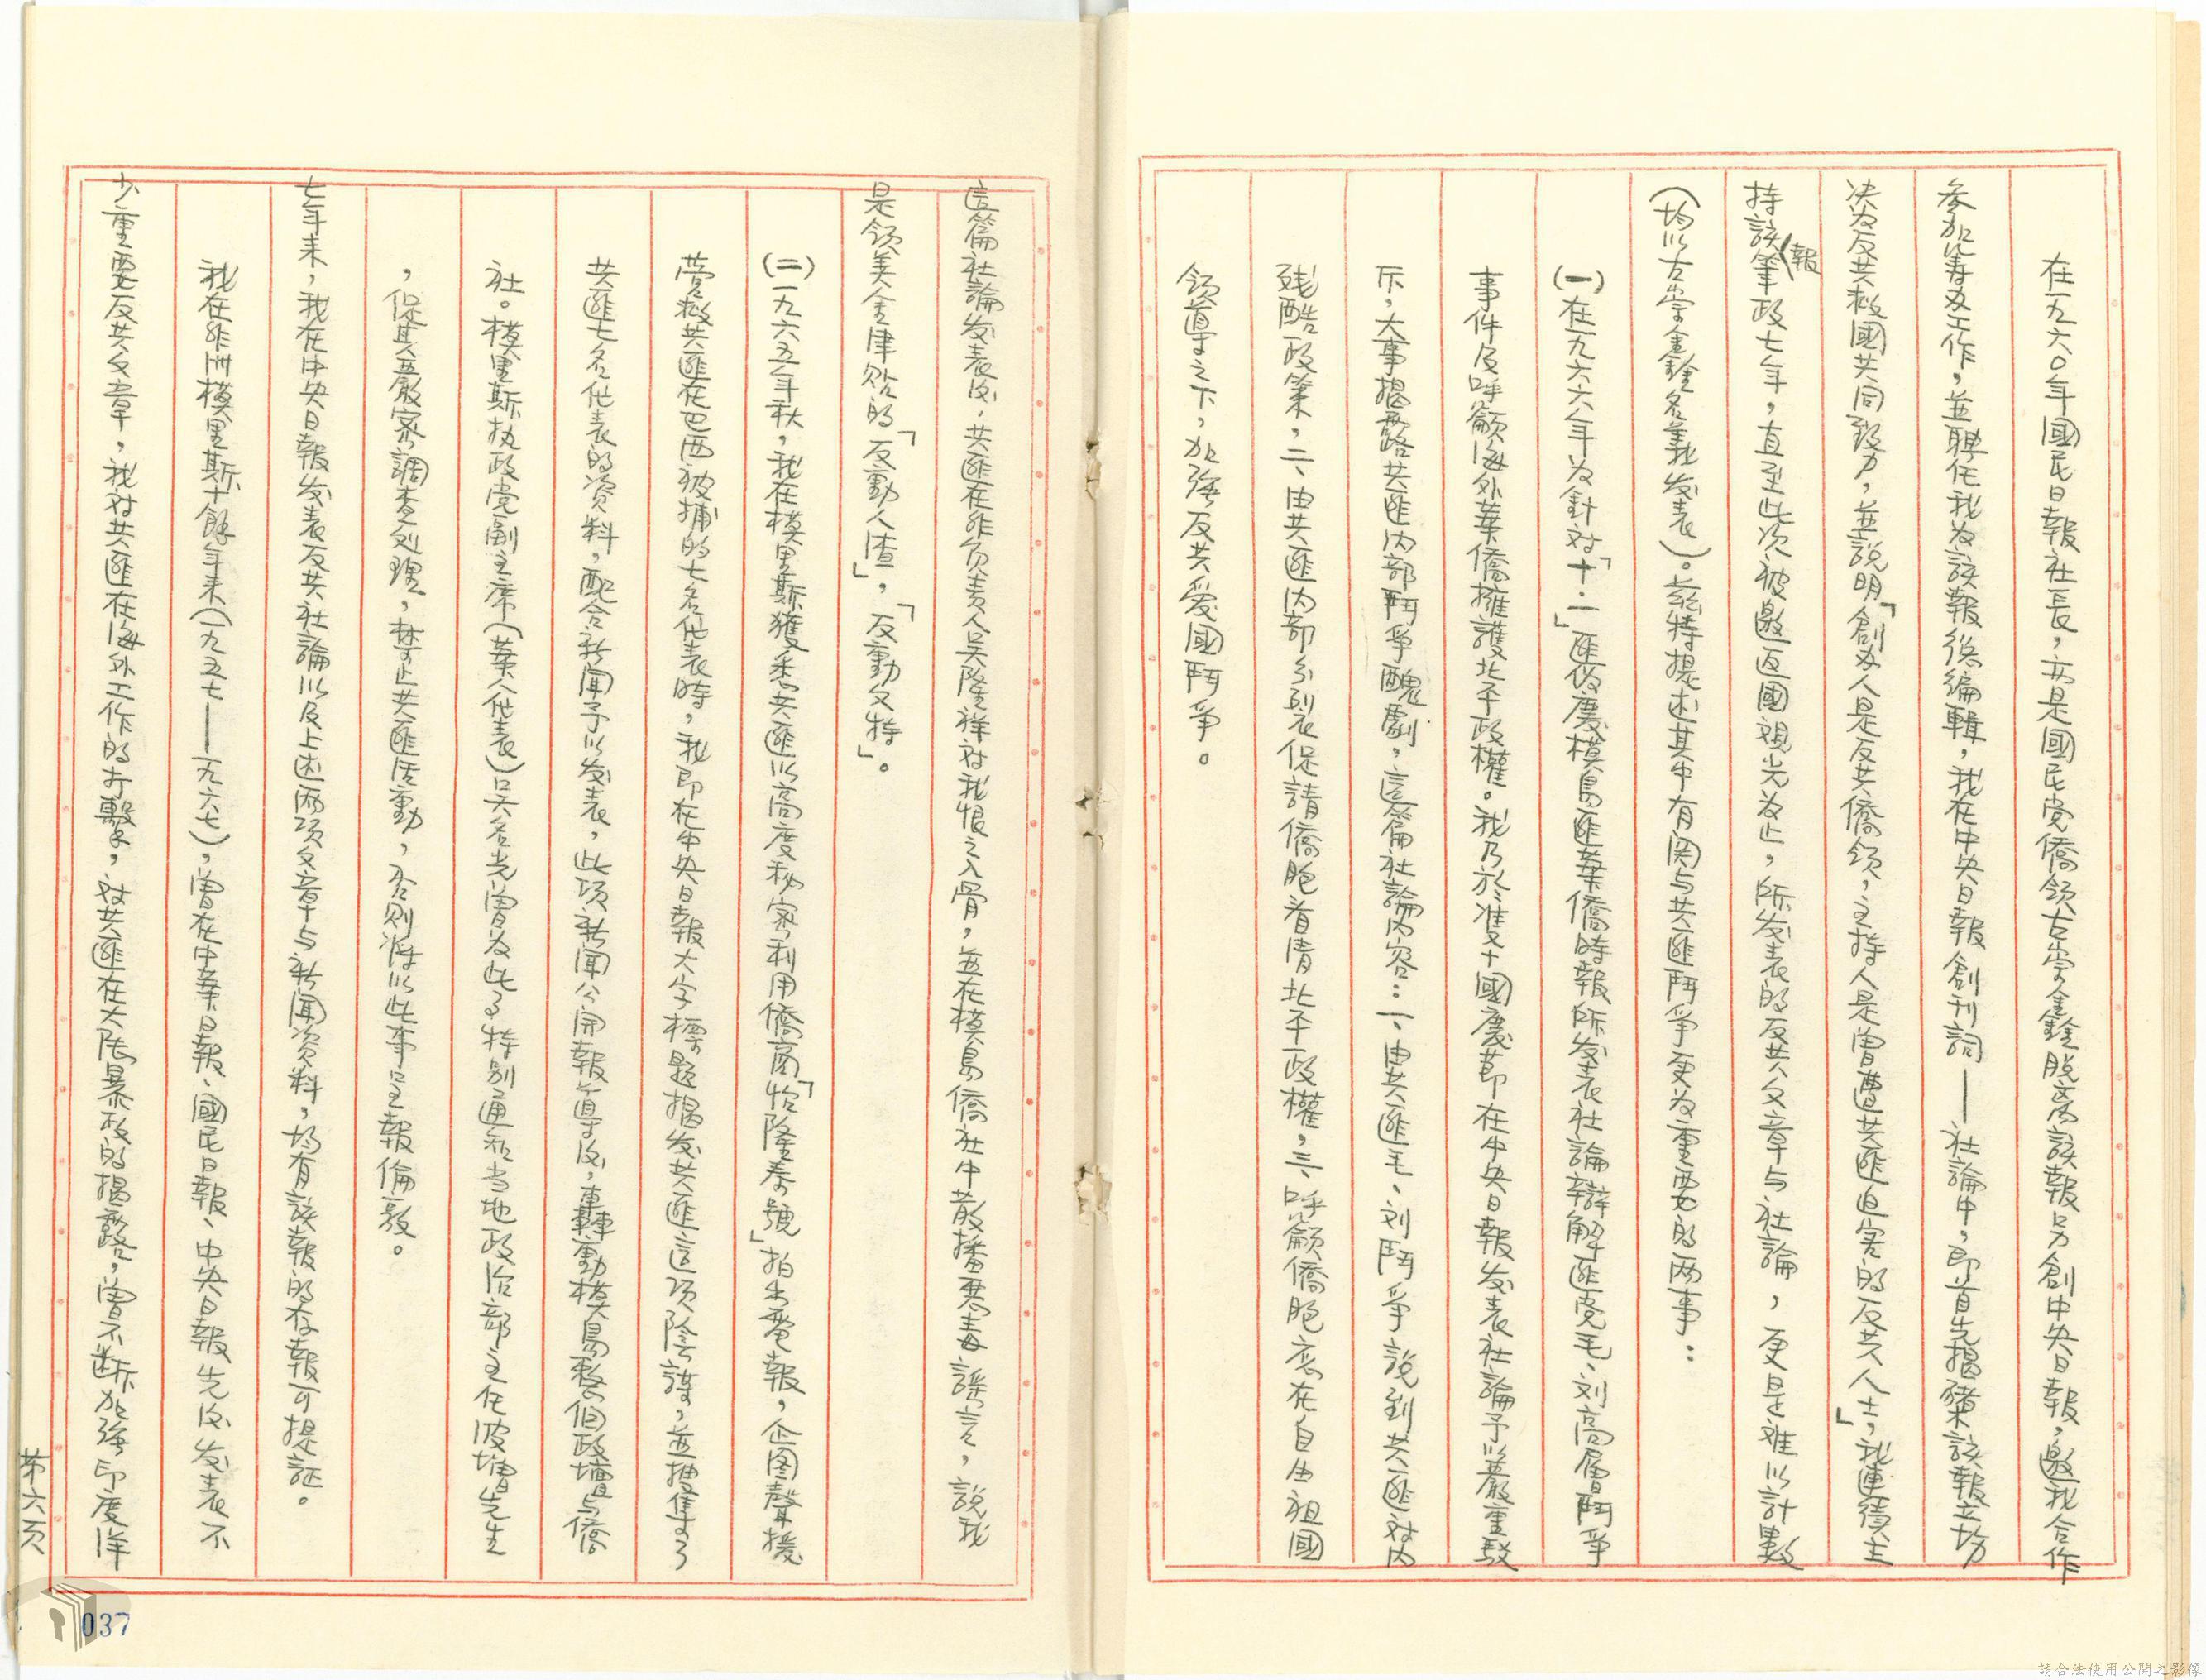 在一九六〇年國民日報社長,亦是國民党僑領古崇金鍂脫离該報另創中央日報,邀我合作
參加籌办工作,並聘任我为該報総編輯,我在中央日報創刊詞——社論中,即首先揭櫫該報立场
决为反共救國共同致力,並說明「創办人是反共僑領,主持人是曾遭共匪迫害的反共人士」,我連續主
持該報筆政七年,直至此次被邀返國观光为止,所发表的反共文章与社論,更是难以計數
(均以古崇金鍂名義发表)。兹特提述其中有関与共匪鬥爭更为重要的两事:
(一)在一九六六年为針対「十·一」匪伪慶模島匪華僑時報所发表社論辯解匪党毛、刘高層鬥爭
事件及呼籲海外華僑擁護北平政權。我乃於雙十國慶節在中央日報发表社論予以嚴重駁
斥,大事揭露共匪内部鬥爭醜劇,這篇社論内容:一、由共匪毛、刘鬥爭説到共匪対内
残酷政策,二、由共匪内部分列表促請僑胞看清北平政權,三、呼籲僑胞应在自由祖國
領導之下,加強反共爱國鬥爭。
這篇社論发表后,共匪在非负责人吴隆祥対我恨之入骨,並在模島僑社中散播惡毒謡言,說我
是領美金津贴的「反動人渣」,「反動文特」。
(二)一九六五年秋,我在模里斯獲悉共匪以高度秘密利用僑商「怡隆泰號」拍出電報,企图聲援
营救共匪在巴西被捕的七名代表時,我即在中央日報大字標題揭发共匪這項陰謀,並搜集了
共匪七名代表的资料,配合新聞予以发表,此項新聞公開報導后,轟動模島整個政壇与僑
社。模里斯执政党副主席(華人代表)吴名光曾为此了特别通知当地政治部主任彼增先生
,促其嚴密調查处理,禁止共匪活動,否則將以此事呈報倫敦。
七年来,我在中央日報发表反共社論以及上述两项文章与新聞资料,均有該報的存報可提証。
我在非洲模里斯十餘年来(一九五七——一九六七),曾在中華日報、國民日報、中央日報先后发表不
少重要反共文章,我対共匪在海外工作的打擊,対共匪在大陆暴政的揭露,曾不断加強印度洋
第六页
037
請合法使用公開之影像